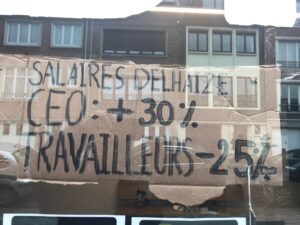 SALAIRES DELHAIZE
CEO: +30%
TRAVAILLEURS -25%